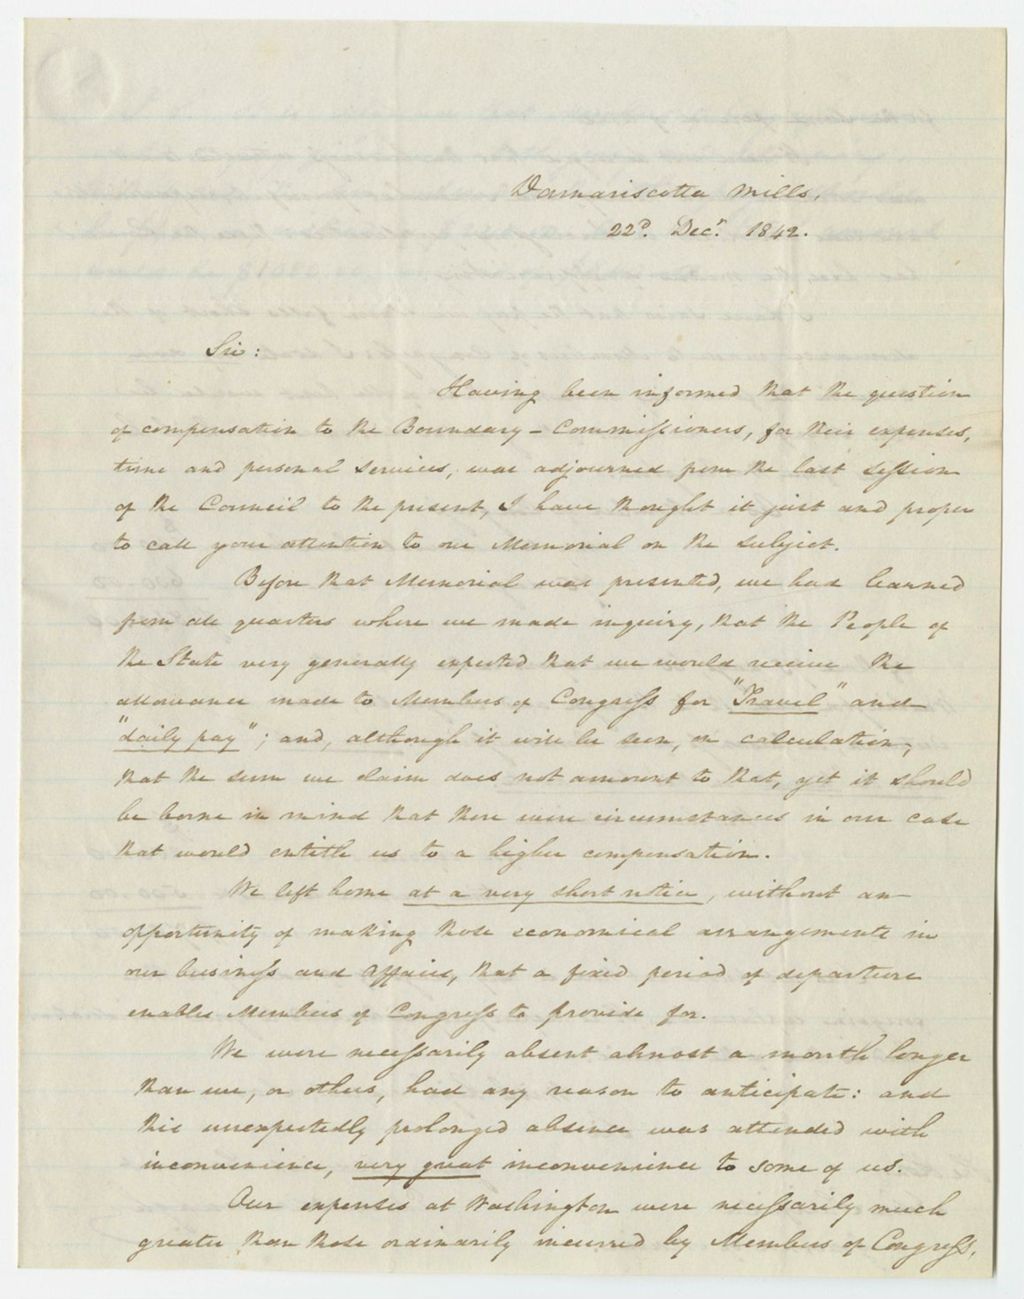 Damariscotta Mills,
22d. Decr. 1842.
Sir:
Having been informed that the question
of compensation to the Boundary-Commissioners, for their expenses,
time and personal services, was adjourned from the last session
of the Council to the present, I have thought it just and proper
to call your attention to our Memorial on the subject.
Before that Memorial was presented, we had learned
from all quarters where we made inquiry, that the People of
the State very generally expected that we would receive the
allowance made to Members of Congress for "Travel" and
"daily pay"; and, although it will be seen, on calculation,
that the sum we claim does not amount to that, yet it should
be borne in mind that there were circumstances in our case
that would entitle us to a higher compensation.
We left home at a very short notice, without an
opportunity of making those economical arrangements in
our business and affairs, that a fixed period of departure
enables Members of Congress to provide for.
We were necessarily absent almost a month longer
than we, or others, had any reason to anticipate: and
this unexpectedly prolonged absence was attended with
inconvenience, very great inconvenience to some of us.
Our expenses at Washington were necessarily much
greater than those ordinarily incurred by Members of Congress,